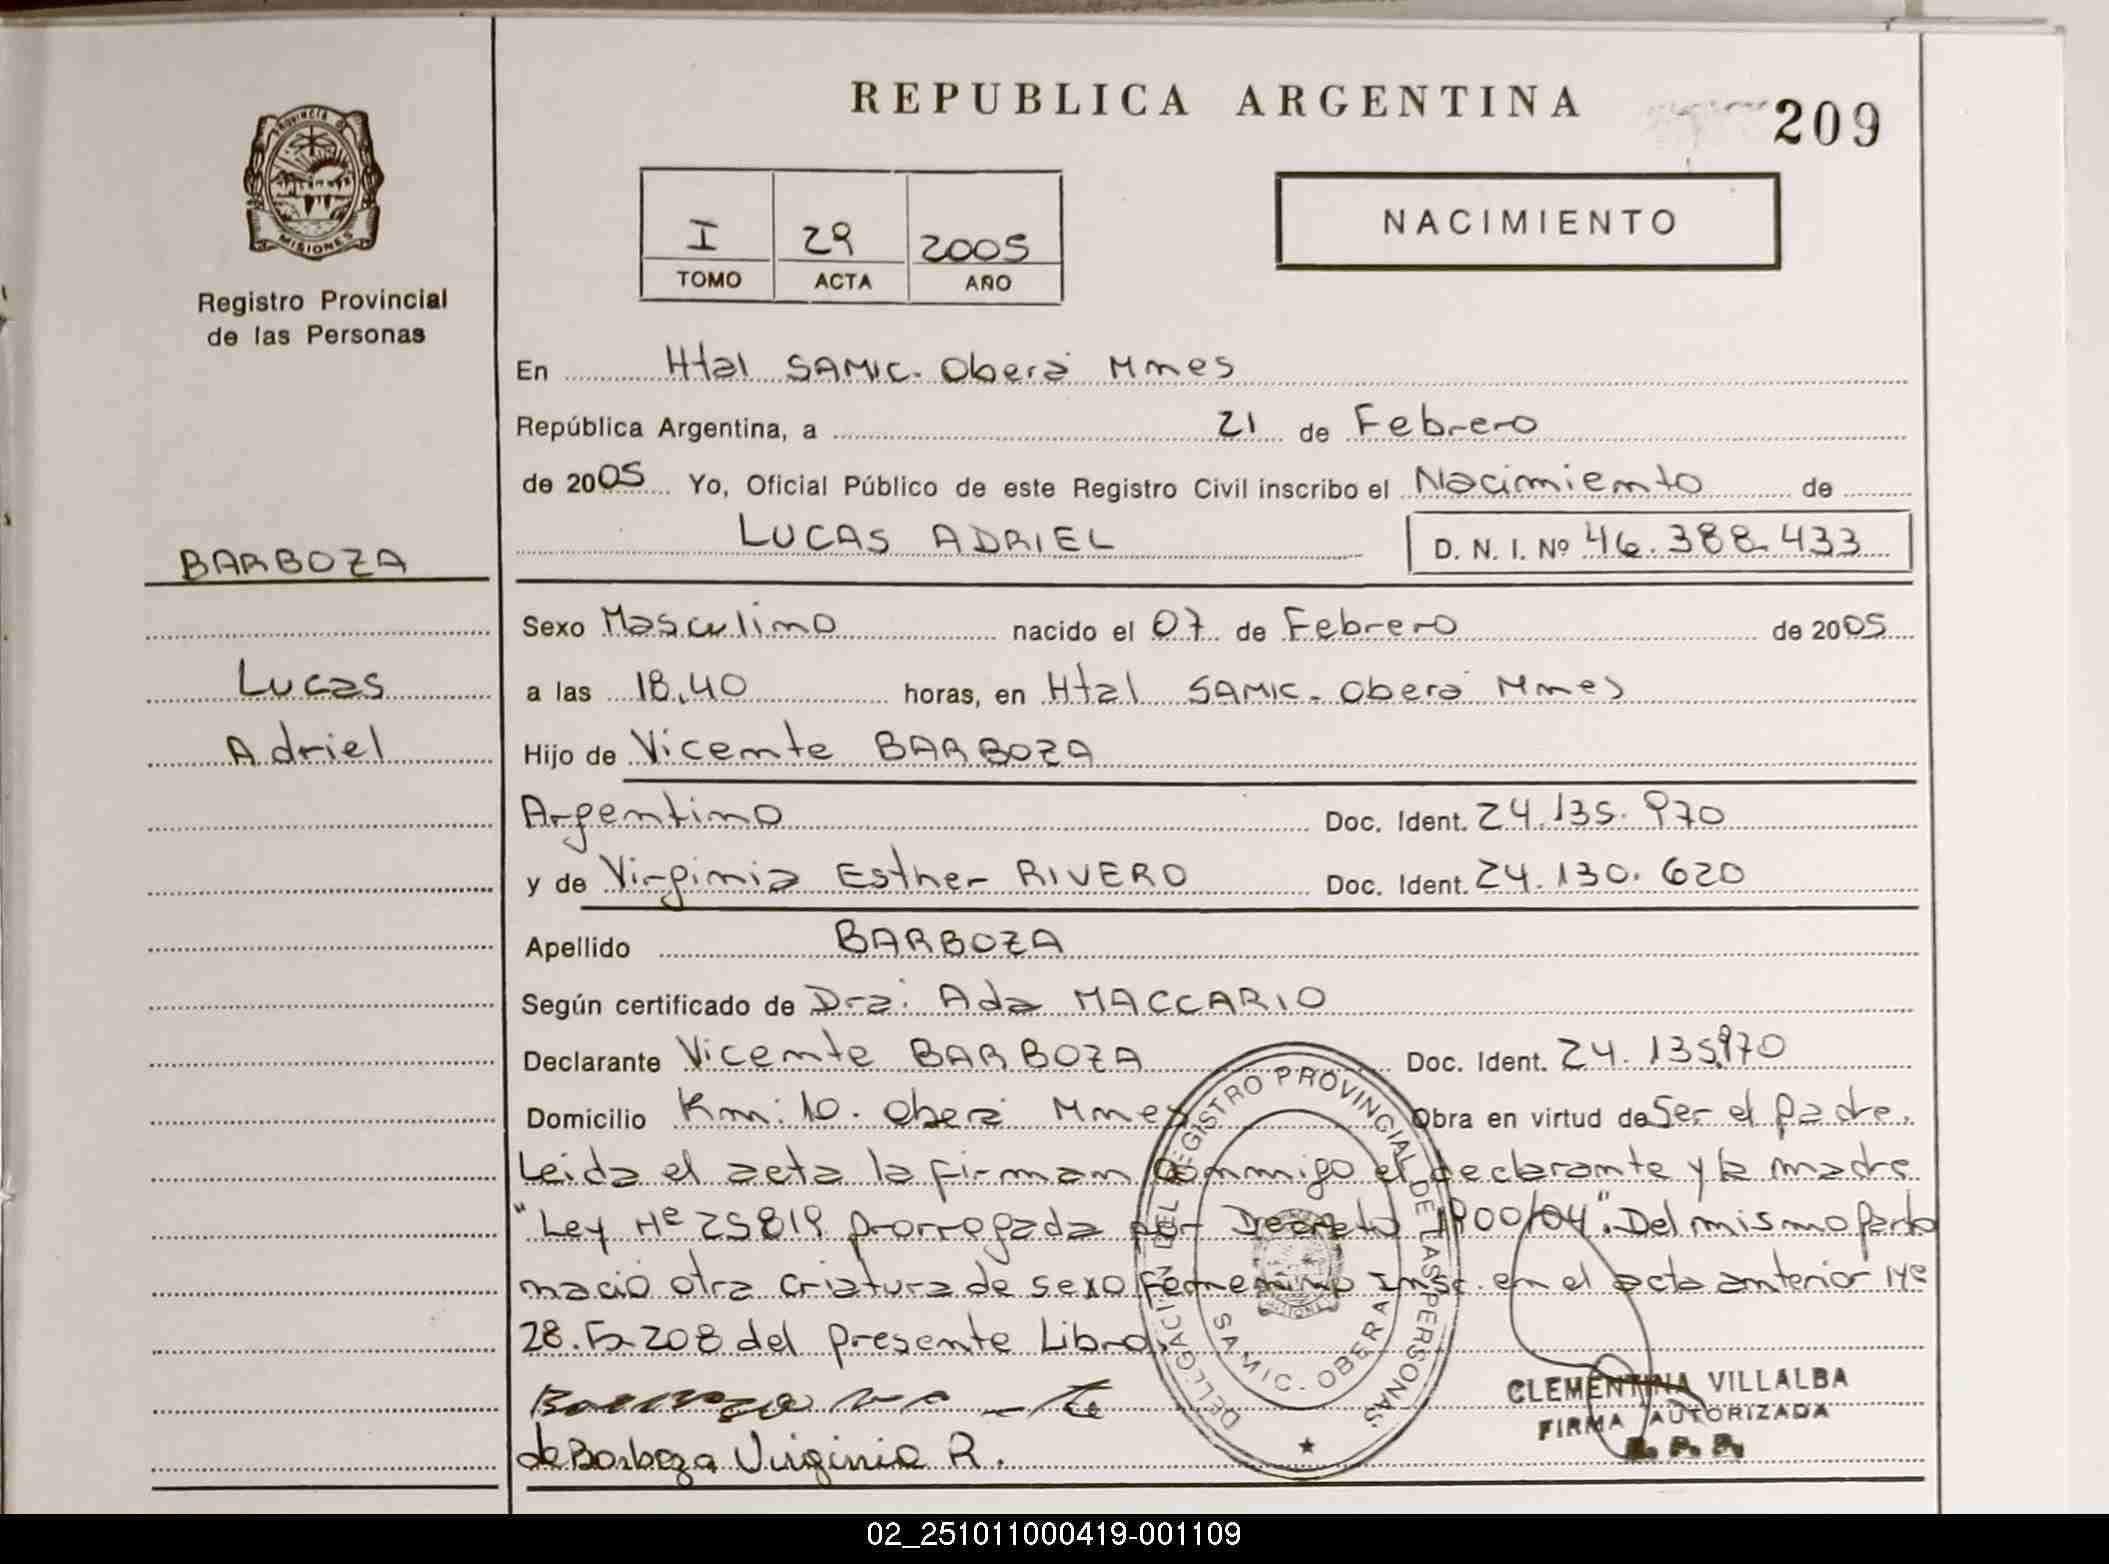 REPUBLICA ARGENTINA
209
PROVINCIA DE
MISIONES
Registro Provincial
de las Personas
I 29 2005
TOMO ACTA AÑO
NACIMIENTO
En Htal SAMIC. Oberá Mnes
República Argentina, a 21 de Febrero
de 2005 Yo, Oficial Público de este Registro Civil inscribo el Nacimiento de
LUCAS ADRIEL D. N. I. Nº 46.388.433
BARBOZA
Lucas
Adriel
Sexo Masculino nacido el 07 de Febrero de 2005
a las 18,40 horas, en Htal SAMIC. Oberá Mnes
Hijo de Vicente BARBOZA
Argentino Doc. Ident. 24.135.970
y de Virginia Esther RIVERO Doc. Ident. 24.130.620
Apellido BARBOZA
Según certificado de Dra. Ada MACCARIO
Declarante Vicente BARBOZA Doc. Ident. 24.135.970
Domicilio Km: 10. Oberá Mnes Obra en virtud de Ser el padre.
Leida el acta la firman conmigo el declarante y la madre
"Ley Nº 25819 prorrogada por Decreto 1900/04". Del mismo parto
nació otra criatura de sexo femenino Insc. en el acta anterior Nº
28. Fº 208 del presente Libro.
de Barboza Virginia R.
DELEGACION DEL REGISTRO PROVINCIAL DE LAS PERSONAS
SAMIC. OBERA
CLEMENTINA VILLALBA
FIRMA AUTORIZADA
R. P. P.
02_251011000419-001109